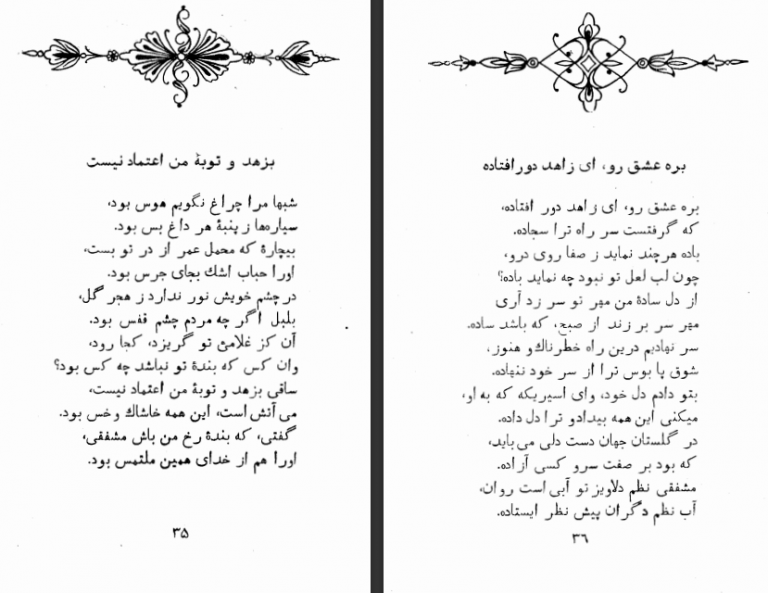 بزهد و توبهٔ من اعتماد نیست
شبها مرا چراغ نگویم هوس بود،
سیاره‌ها ز پنبهٔ هر داغ بس بود.
بیچارهٔ که محمل عمر از در تو بست،
اورا حباب اشك بجای جرس بود.
در چشم خویش نور ندارد ز هجر گل،
بلبل اگر چه مردم چشم قفس بود.
آن کز غلامئ تو گریزد، کجا رود،
وان کس که بندهٔ تو نباشد چه کس بود؟
ساقی بزهد و توبهٔ من اعتماد نیست،
می آتش است، این همه خاشاك و خس بود.
گفتی، که بندهٔ رخ من باش مشفقی،
اورا هم از خدای همین ملتمس بود.
۳۵
بره عشق رو، ای زاهد دور افتاده
بره عشق رو، ای زاهد دور افتاده،
که گرفتست سر راه ترا سجاده.
باده هر چند نماید ز صفا روی درو،
چون لب لعل تو نبود چه نماید باده؟
از دل سادهٔ من مهر تو سر زد آری
مهر سر بر زند از صبح، که باشد ساده.
سر نهادیم درین راه خطرناك و هنوز،
شوق پا بوس ترا از سر خود ننهاده.
بتو دادم دل خود، وای اسیریکه که به او،
میکنی این همه بیدادو ترا دل داده.
در گلستان جهان دست دلی می باید،
که بود بر صفت سرو کسی آزاده.
مشفقی نظم دلاویز تو آبی است روان،
آب نظم دگران پیش نظر ایستاده.
۳٦